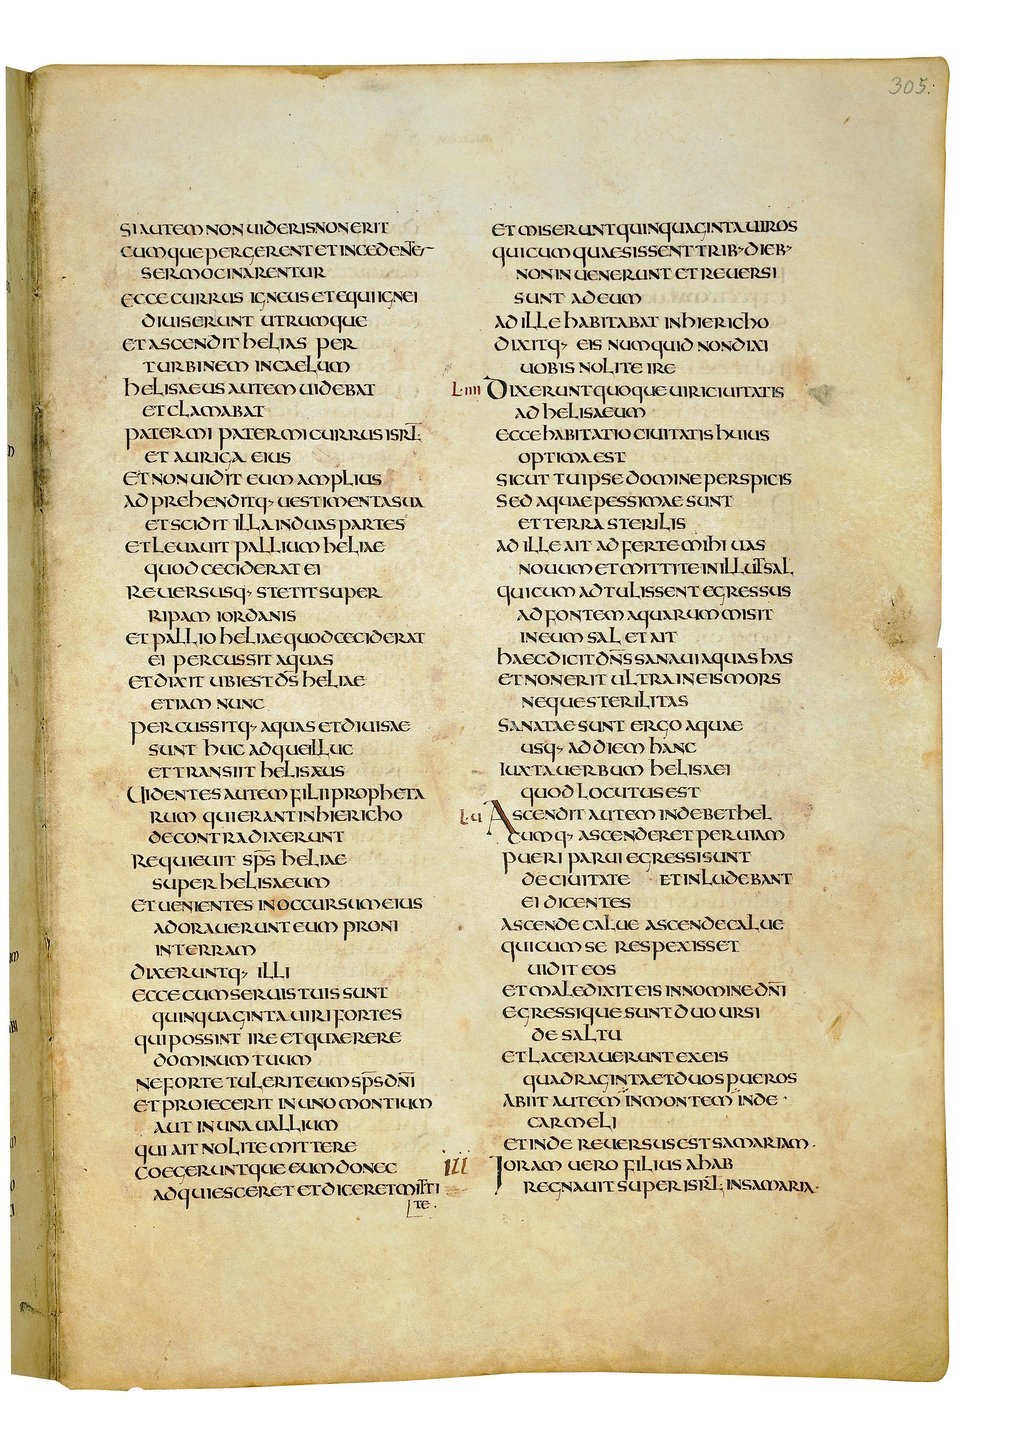 305.
SI AUTEM NON UIDERIS NON ERIT
CUMQUE PERGERENT ET INCEDENTES
SERMOCINARENTUR
ECCE CURRUS IGNEUS ET EQUI IGNEI
DIUISERUNT UTRUMQUE
ET ASCENDIT HELIAS PER
TURBINEM IN CAELUM
HELISAEUS AUTEM UIDEBAT
ET CLAMABAT
PATER MI PATER MI CURRUS ISRL̅
ET AURIGA EIUS
ET NON UIDIT EUM AMPLIUS
ADPREHENDITQ· UESTIMENTA SUA
ET SCIDIT ILLA IN DUAS PARTES
ET LEUAUIT PALLIUM HELIAE
QUOD CECIDERAT EI
REUERSUSQ· STETIT SUPER
RIPAM IORDANIS
ET PALLIO HELIAE QUOD CECIDERAT
EI PERCUSSIT AQUAS
ET DIXIT UBI EST D̅S̅ HELIAE
ETIAM NUNC
PERCUSSITQ· AQUAS ET DIUISAE
SUNT HUC ADQUE ILLUC
ET TRANSIIT HELISAEUS
UIDENTES AUTEM FILII PROPHETA
RUM QUI ERANT IN HIERICHO
DE CONTRA DIXERUNT
REQUIEUIT SP̅S̅ HELIAE
SUPER HELISAEUM
ET UENIENTES IN OCCURSUM EIUS
ADORAUERUNT EUM PRONI
IN TERRAM
DIXERUNTQ· ILLI
ECCE CUM SERUIS TUIS SUNT
QUINQUAGINTA UIRI FORTES
QUI POSSINT IRE ET QUAERERE
DOMINUM TUUM
NE FORTE TULERIT EUM SP̅S̅ DN̅I
ET PROIECERIT IN UNO MONTIUM
AUT IN UNA UALLIUM
QUI AIT NOLITE MITTERE
COEGERUNTQUE EUM DONEC
ADQUIESCERET ET DICERET MITTI
TE.
ET MISERUNT QUINQUAGINTA UIROS
QUI CUM QUAESISSENT TRIB· DIEB·
NON INUENERUNT ET REUERSI
SUNT AD EUM
AD ILLE HABITABAT IN HIERICHO
DIXITQ· EIS NUMQUID NON DIXI
UOBIS NOLITE IRE
LIIII DIXERUNT QUOQUE UIRI CIUITATIS
AD HELISAEUM
ECCE HABITATIO CIUITATIS HUIUS
OPTIMA EST
SICUT TU IPSE DOMINE PERSPICIS
SED AQUAE PESSIMAE SUNT
ET TERRA STERILIS
AD ILLE AIT ADFERTE MIHI UAS
NOUUM ET MITTITE IN ILLUT SAL
QUI CUM ADTULISSENT EGRESSUS
AD FONTEM AQUARUM MISIT
IN EUM SAL ET AIT
HAEC DICIT DN̅S̅ SANAUI AQUAS HAS
ET NON ERIT ULTRA IN EIS MORS
NEQUE STERILITAS
SANATAE SUNT ERGO AQUAE
USQ· AD DIEM HANC
IUXTA UERBUM HELISAEI
QUOD LOCUTUS EST
LU ASCENDIT AUTEM INDE BETHEL
CUMQ· ASCENDERET PER UIAM
PUERI PARUI EGRESSI SUNT
DE CIUITATE ET INLUDEBANT
EI DICENTES
ASCENDE CALUE ASCENDE CALUE
QUI CUM SE RESPEXISSET
UIDIT EOS
ET MALEDIXIT EIS IN NOMINE DN̅I
EGRESSIQUE SUNT DUO URSI
DE SALTU
ET LACERAUERUNT EX EIS
QUADRAGINTA ET DUOS PUEROS
ABIIT AUTEM IN MONTEM INDE ·
CARMELI
ET INDE REUERSUS EST SAMARIAM.
III IORAM UERO FILIUS AHAB
REGNAUIT SUPER ISRL̅ IN SAMARIA·